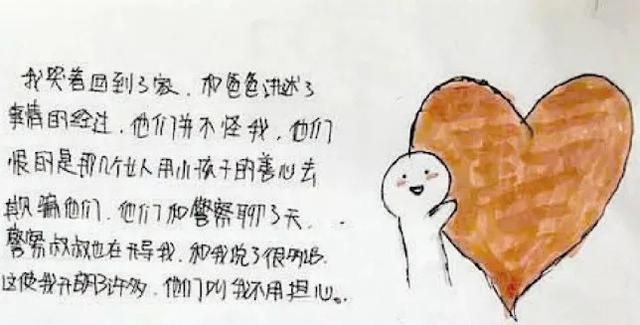 我哭着回到了家，和爸爸讲述了
事情的经过，他们并不怪我，他们
恨的是那几个女人用小孩子的善心去
欺骗他们，他们和警察聊了天，
警察叔叔也在开导我，和我说了很多
这使我开朗了许多，他们叫我不用担心。